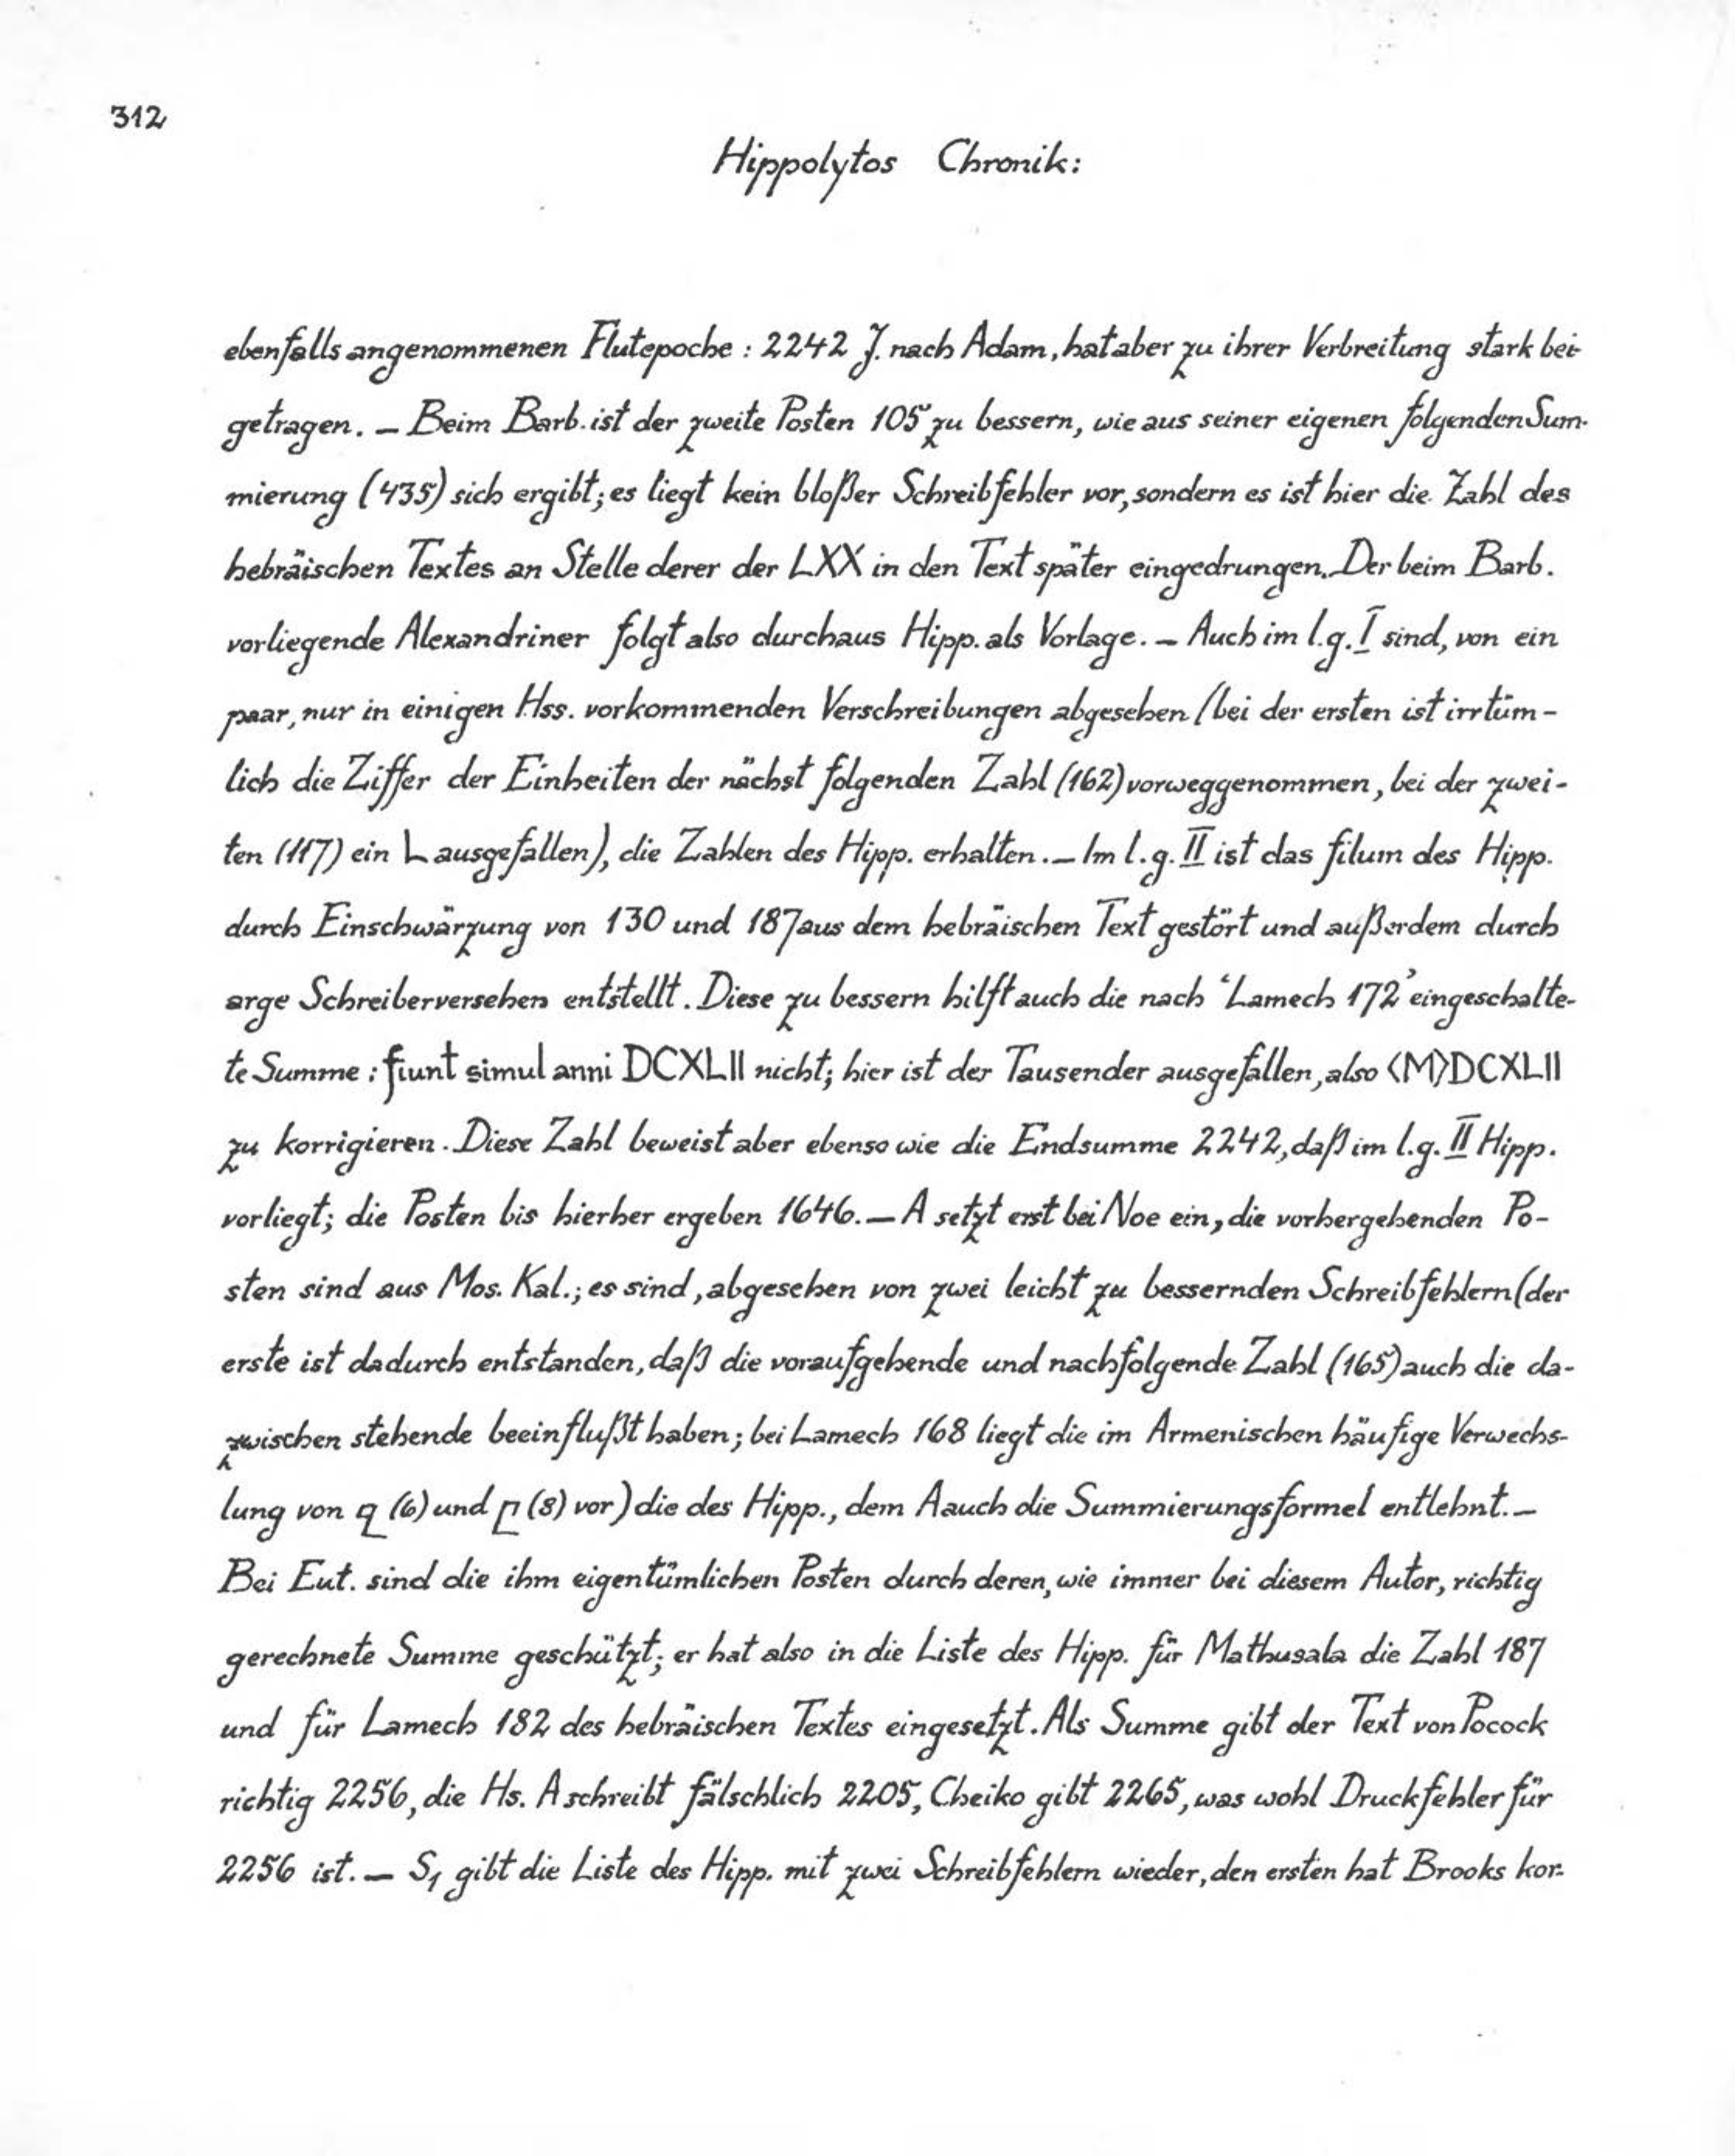 312
Hippolytos Chronik:
ebenfalls angenommenen Flutepoche : 2242 J. nach Adam, hat aber zu ihrer Verbreitung stark bei-
getragen. — Beim Barb. ist der zweite Posten 105 zu bessern, wie aus seiner eigenen folgenden Sum-
mierung (435) sich ergibt; es liegt kein bloßer Schreibfehler vor, sondern es ist hier die Zahl des
hebräischen Textes an Stelle derer der LXX in den Text später eingedrungen. Der beim Barb.
vorliegende Alexandriner folgt also durchaus Hipp. als Vorlage. — Auch im l.g. I sind, von ein
paar, nur in einigen Hss. vorkommenden Verschreibungen abgesehen (bei der ersten ist irrtüm-
lich die Ziffer der Einheiten der nächst folgenden Zahl (162) vorweggenommen, bei der zwei-
ten (117) ein L ausgefallen), die Zahlen des Hipp. erhalten. — Im l.g. II ist das filum des Hipp.
durch Einschwärzung von 130 und 187 aus dem hebräischen Text gestört und außerdem durch
arge Schreiberversehen entstellt. Diese zu bessern hilft auch die nach ‘Lamech 172’ eingeschalte-
te Summe : fiunt simul anni DCXLII nicht; hier ist der Tausender ausgefallen, also <M>DCXLII
zu korrigieren. Diese Zahl beweist aber ebenso wie die Endsumme 2242, daß im l.g. II Hipp.
vorliegt; die Posten bis hierher ergeben 1646. — A setzt erst bei Noe ein, die vorhergehenden Po-
sten sind aus Mos. Kal.; es sind, abgesehen von zwei leicht zu bessernden Schreibfehlern (der
erste ist dadurch entstanden, daß die voraufgehende und nachfolgende Zahl (165) auch die da-
zwischen stehende beeinflußt haben; bei Lamech 168 liegt die im Armenischen häufige Verwechs-
lung von զ (6) und ը (8) vor) die des Hipp., dem A auch die Summierungsformel entlehnt. —
Bei Eut. sind die ihm eigentümlichen Posten durch deren, wie immer bei diesem Autor, richtig
gerechnete Summe geschützt; er hat also in die Liste des Hipp. für Mathusala die Zahl 187
und für Lamech 182 des hebräischen Textes eingesetzt. Als Summe gibt der Text von Pocock
richtig 2256, die Hs. A schreibt fälschlich 2205, Cheiko gibt 2265, was wohl Druckfehler für
2256 ist. — S₁ gibt die Liste des Hipp. mit zwei Schreibfehlern wieder, den ersten hat Brooks kor-